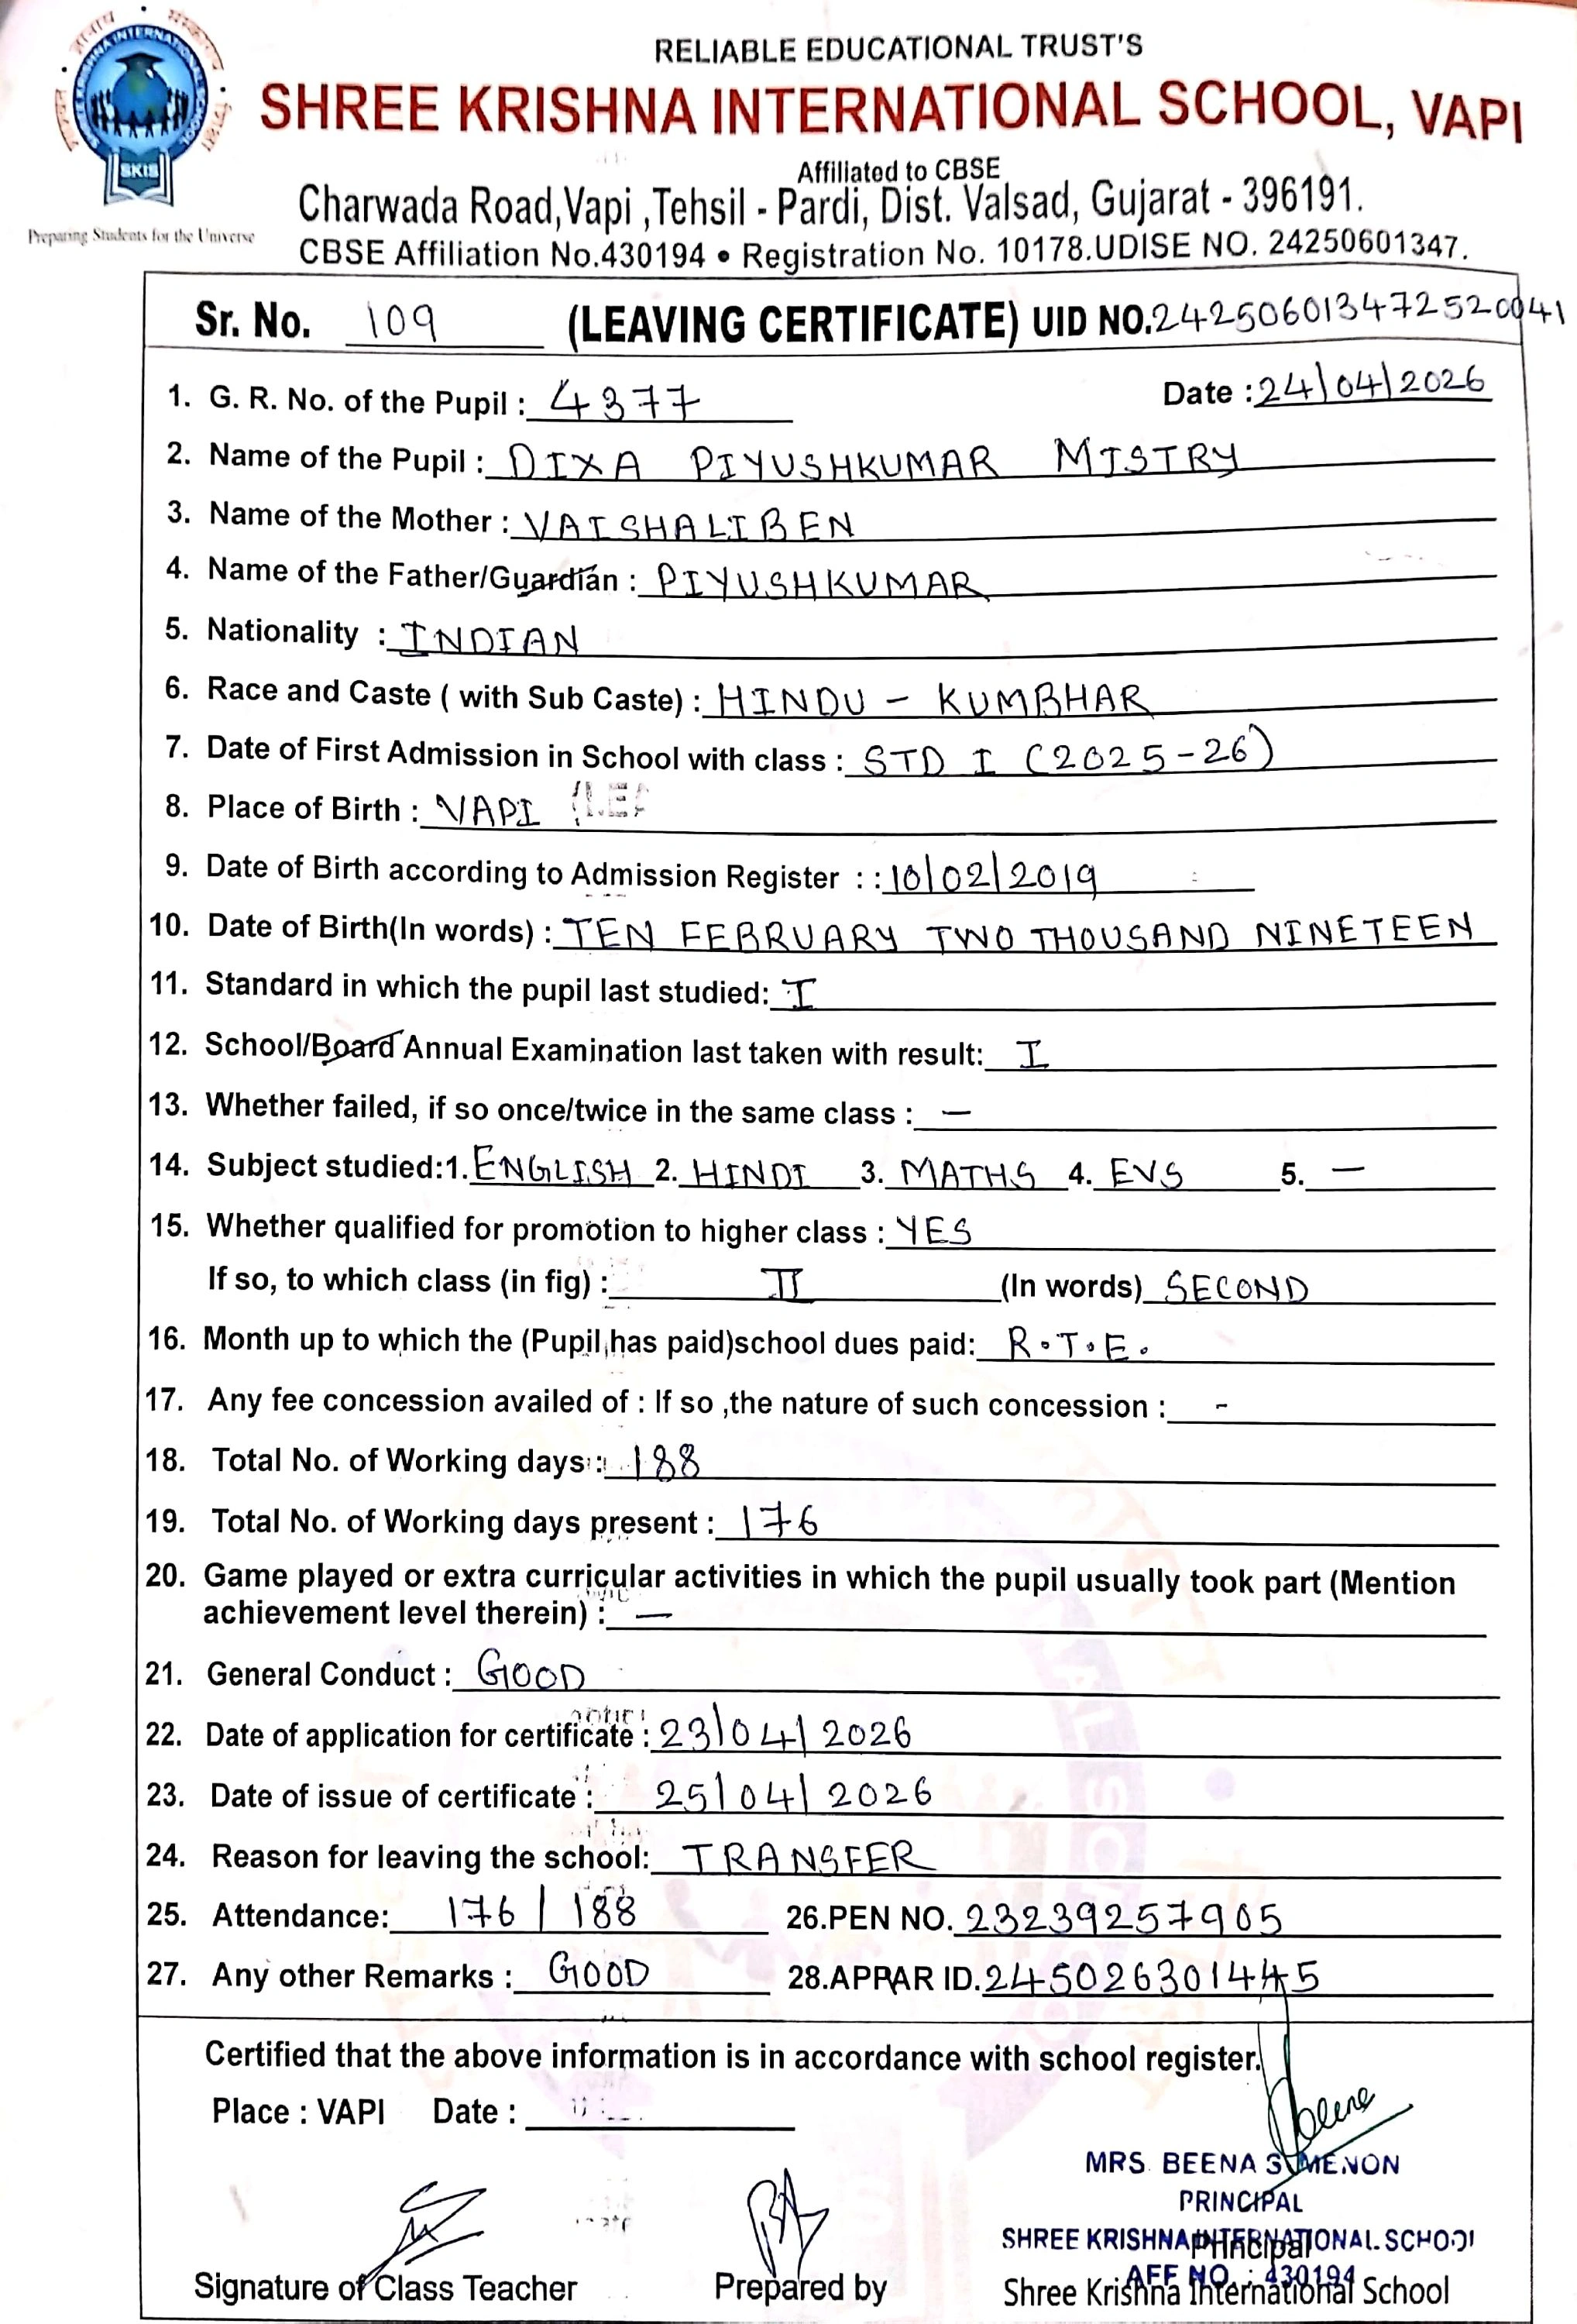 RELIABLE EDUCATIONAL TRUST'S
SHREE KRISHNA INTERNATIONAL SCHOOL, VAPI
SKIS
Preparing Students for the Universe
Affiliated to CBSE
Charwada Road,Vapi ,Tehsil - Pardi, Dist. Valsad, Gujarat - 396191.
CBSE Affiliation No.430194 • Registration No. 10178.UDISE NO. 24250601347.
Sr. No. 109 (LEAVING CERTIFICATE) UID NO.242506013472520041
1. G. R. No. of the Pupil : 4377 Date :24/04/2026
2. Name of the Pupil : DIXA PIYUSHKUMAR MISTRY
3. Name of the Mother : VAISHALIBEN
4. Name of the Father/Guardian : PIYUSHKUMAR
5. Nationality : INDIAN
6. Race and Caste ( with Sub Caste) : HINDU - KUMBHAR
7. Date of First Admission in School with class : STD I (2025-26)
8. Place of Birth : VAPI
9. Date of Birth according to Admission Register : : 10/02/2019
10. Date of Birth(In words) : TEN FEBRUARY TWO THOUSAND NINETEEN
11. Standard in which the pupil last studied: I
12. School/Board Annual Examination last taken with result: I
13. Whether failed, if so once/twice in the same class : —
14. Subject studied:1. ENGLISH 2. HINDI 3. MATHS 4. EVS 5. —
15. Whether qualified for promotion to higher class : YES
If so, to which class (in fig) : II (In words) SECOND
16. Month up to which the (Pupil has paid)school dues paid: R.T.E.
17. Any fee concession availed of : If so ,the nature of such concession : -
18. Total No. of Working days : 188
19. Total No. of Working days present : 176
20. Game played or extra curricular activities in which the pupil usually took part (Mention
achievement level therein) : —
21. General Conduct : GOOD
22. Date of application for certificate : 23/04/2026
23. Date of issue of certificate : 25/04/2026
24. Reason for leaving the school: TRANSFER
25. Attendance: 176 / 188 26.PEN NO. 23239257905
27. Any other Remarks : GOOD 28.APPAR ID. 245026301445
Certified that the above information is in accordance with school register.
Place : VAPI Date :
MRS. BEENA S. MENON
PRINCIPAL
SHREE KRISHNA INTERNATIONAL SCHOOL
Principal
AFF NO. : 430194
Signature of Class Teacher Prepared by Shree Krishna International School